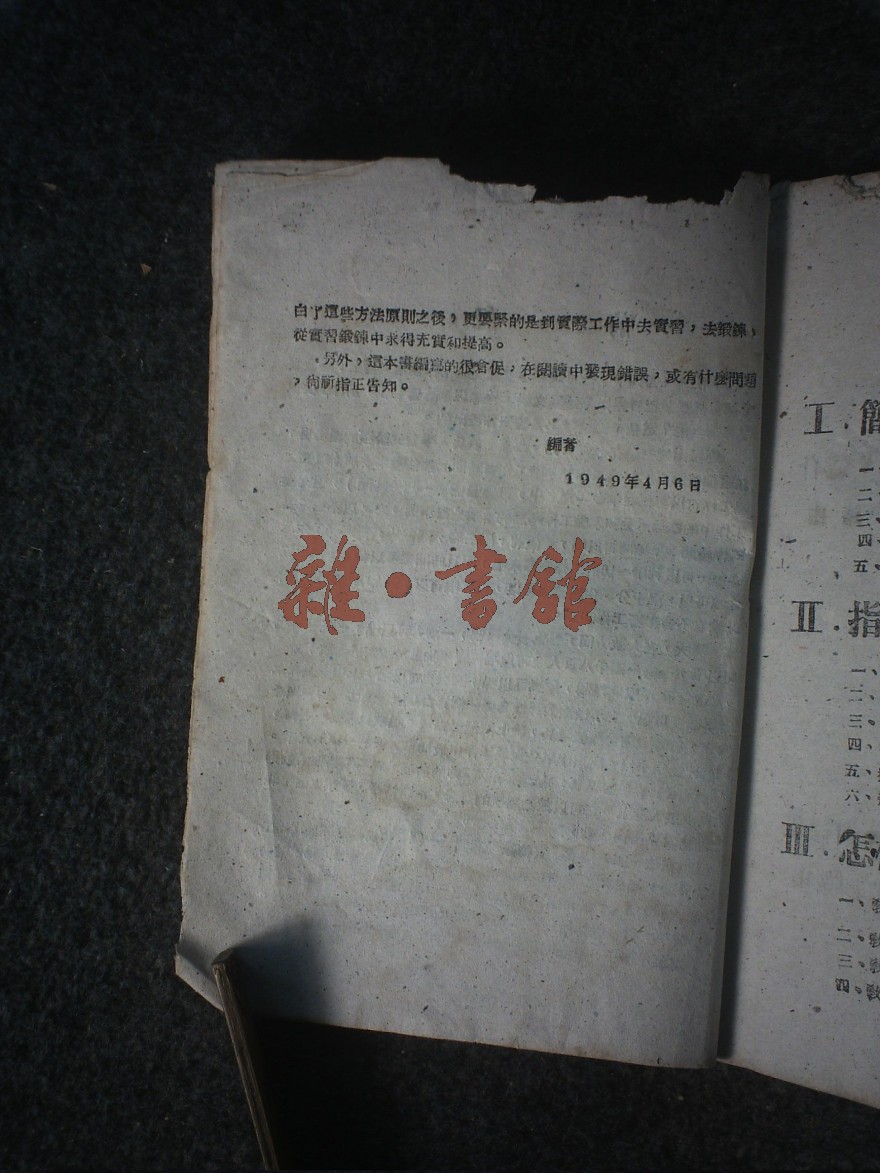 白了這些方法原則之後，更要緊的是到實際工作中去實習，去鍛鍊，
從實習鍛鍊中求得充實和提高。
另外，這本書編寫的很倉促，在閱讀中發現錯誤，或有什麼問題
，尚祈指正告知。
編者
1949年4月6日
雜·書館
I.簡
一、
二、
三、
四、
五、
II.指
一、
二、
三、
四、
五、
六、
III.怎
一、教
二、教
三、教
四、教